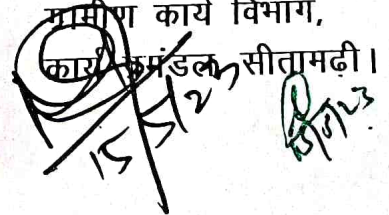 ग्रामीण कार्य विभाग,
कार्य प्रमंडल, सीतामढ़ी।
15/5/23